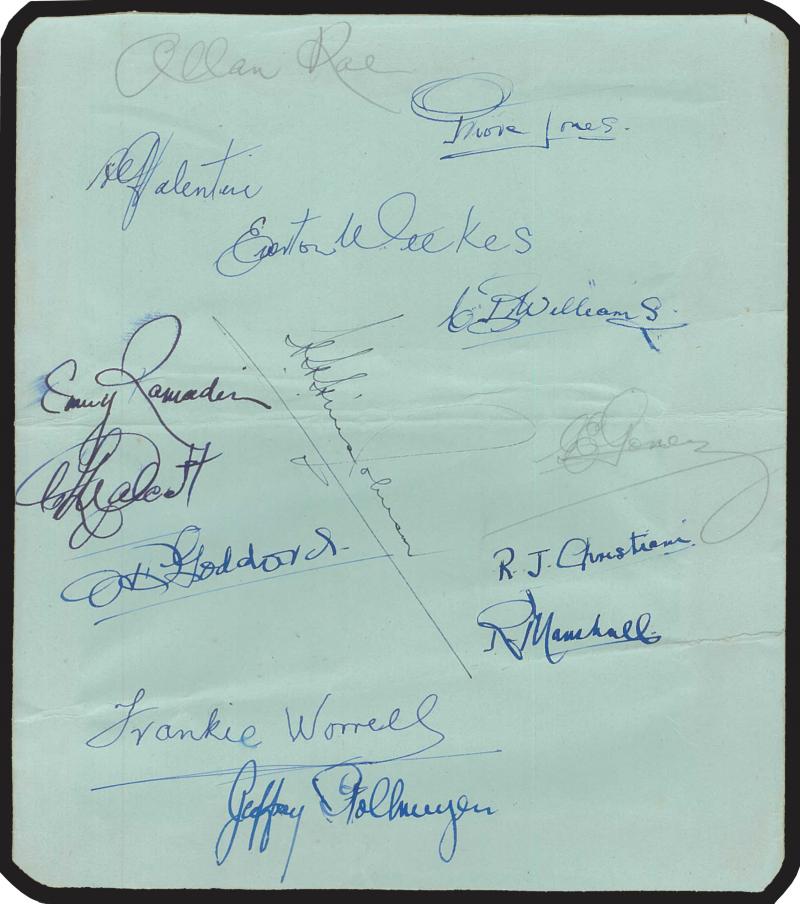 Allan Rae
Prior Jones.
A Valentine
Everton Weekes
C B Williams
Sonny Ramadin
H H Hines Johnson
G E Gomez
C L Walcott
J D Goddard.
R. J. Christiani
R Marshall
Frankie Worrell
Jeffrey Stollmeyer